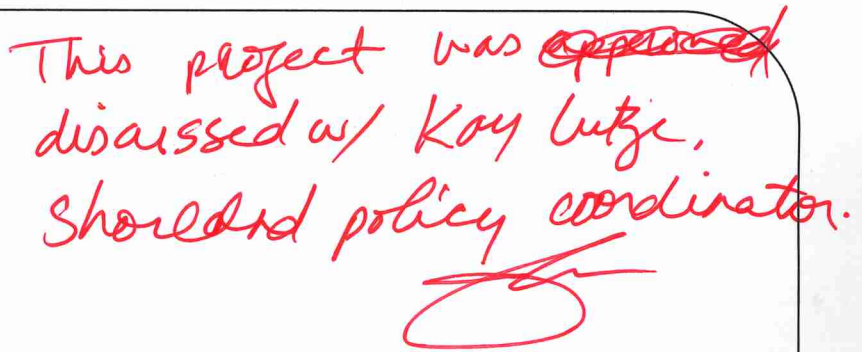 This project was approved
discussed w/ Kay Lutze,
Shoreland policy coordinator.